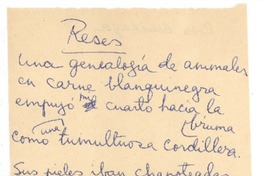 Reses
Una genealogía de animales
en carne blanquinegra
empujó mi cuarto hacia la
bruma
como una tumultuosa cordillera.
Sus pieles iban chapoteadas